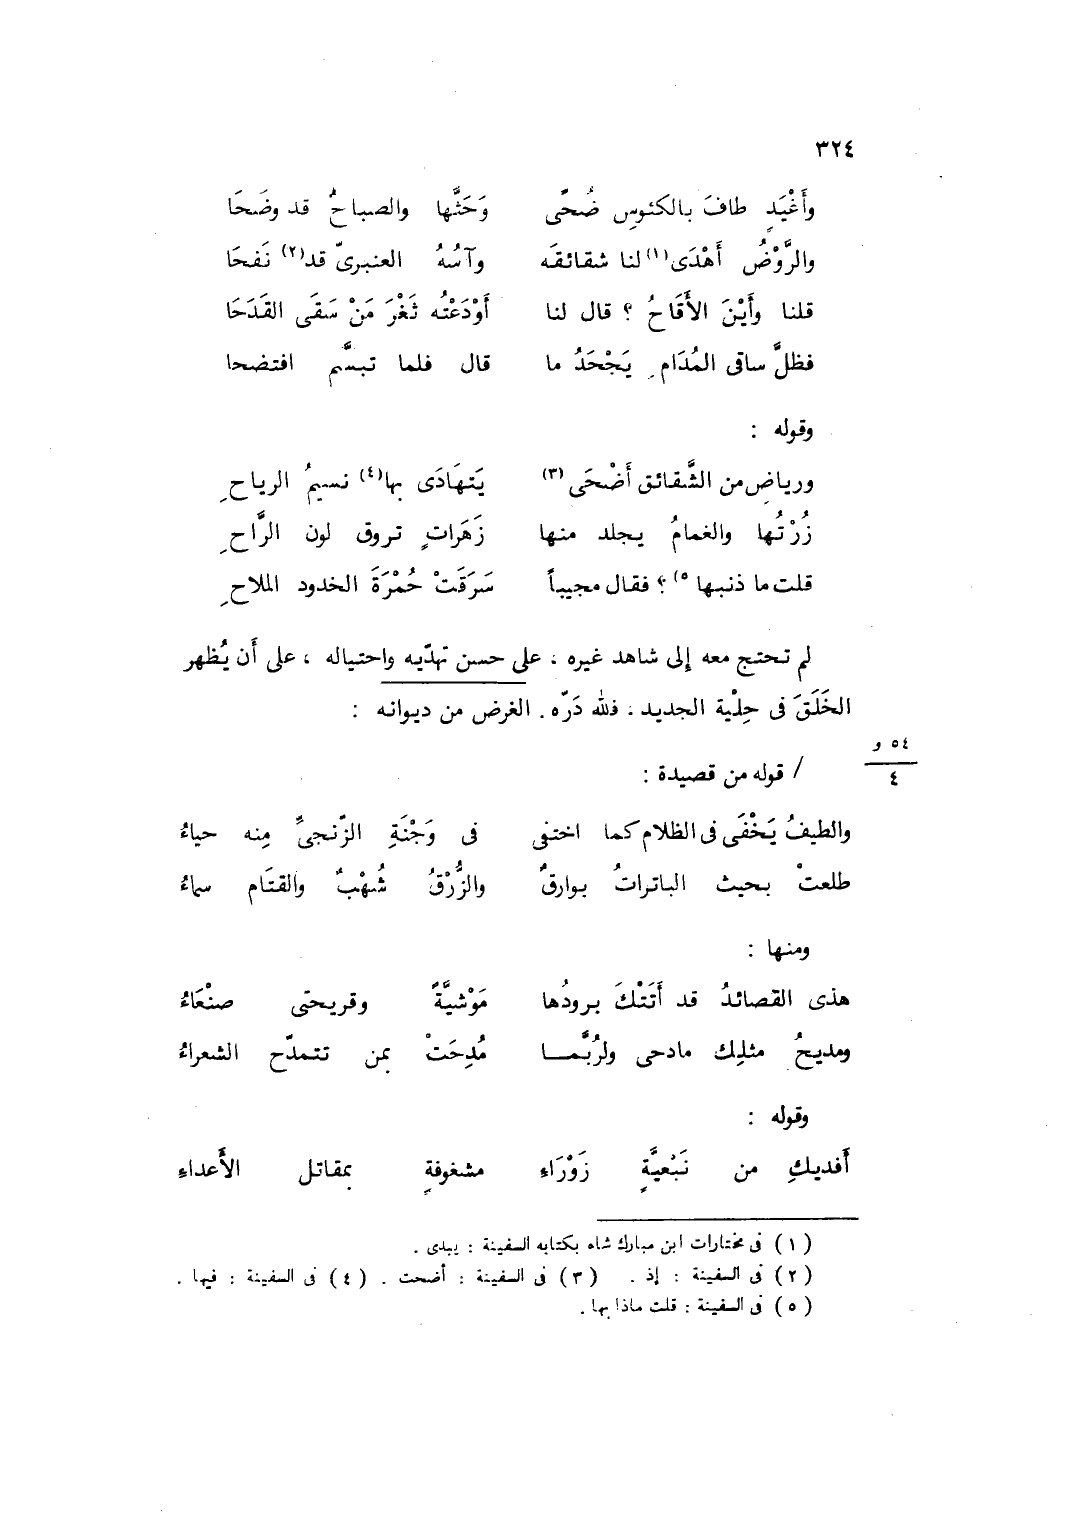 ٣٢٤
وأَغْيَدٍ طافَ بالكئوسِ ضُحًى وَحَثَّها والصباحُ قد وضَحَا
والرَّوْضُ أَهْدَى(١) لنا شقائقَه وآسُهُ العنبرىّ قد(٢) نَفحَا
قلنا وأَيْنَ الأَقَاحُ ؟ قال لنا أَوْدَعْتُه ثَغْرَ مَنْ سَقَى القَدَحَا
فظلَّ ساقى المُدَامِ يَجْحَدُ ما قال فلما تبسَّم افتضحا
وقوله :
ورياضٍ من الشَّقائق أَضْحَى(٣) يَتهَادَى بها(٤) نسيمُ الرياحِ
زُرْتُها والغمامُ يجلد منها زَهَراتٍ تروق لون الرَّاحِ
قلت ما ذنبها(٥) ؟ فقال مجيباً سَرَقَتْ حُمْرَةَ الخدود الملاحِ
لم تحتج معه إلى شاهد غيره ، على حسن تهدّيه واحتياله ، على أَن يُظهر
الخَلَقَ فى حِلْية الجديد ، فلله دَرّه . الغرض من ديوانه :
٥٤ و
٤
/ قوله من قصيدة :
والطيفُ يَخْفَى فى الظلام كما اختفى فى وَجْنَةِ الزّنجىِّ مِنه حياءُ
طلعتْ بحيث الباتراتُ بوارقٌ والزُّرْقُ شُهْبٌ والقتَام سماءُ
ومنها :
هذى القصائدُ قد أَتَتْكَ برودُها مَوْشيَّةً وقريحتى صنْعَاءُ
ومديحُ مثلِك مادحى ولرُبَّمـــا مُدِحَتْ بمن تتمدّح الشعراءُ
وقوله :
أَفديكِ من نَبْعيَّةٍ زَوْرَاءِ مشغوفةٍ بمقاتل الأَعداءِ
( ١ ) فى مختارات ابن مبارك شاه بكتابه السفينة : يبدى .
( ٢ ) فى السفينة : إذ . ( ٣ ) فى السفينة : أضحت . ( ٤ ) فى السفينة : فيها .
( ٥ ) فى السفينة : قلت ماذا بها .